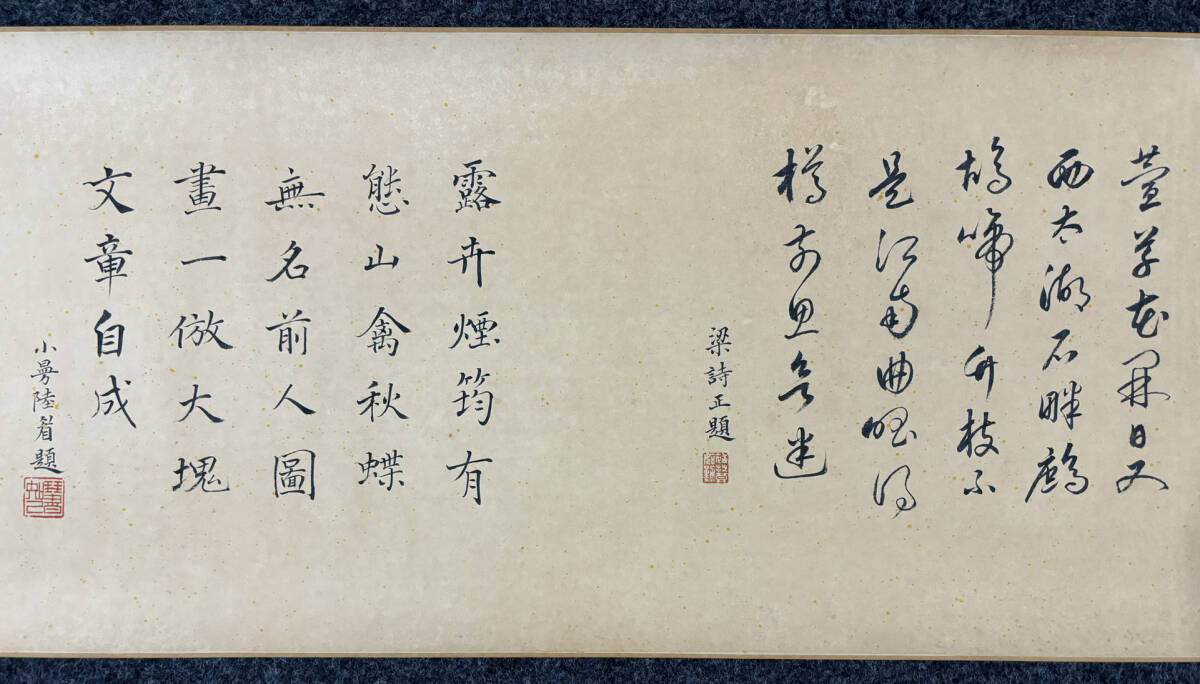 萱草花開日又
西太湖石畔鷓
鴣啼竹枝不
是江南曲得
樽前思迷
梁詩正題
露卉煙筠有
態山禽秋蝶
無名前人圖
畫一倣大塊
文章自成
小曼陸眉題